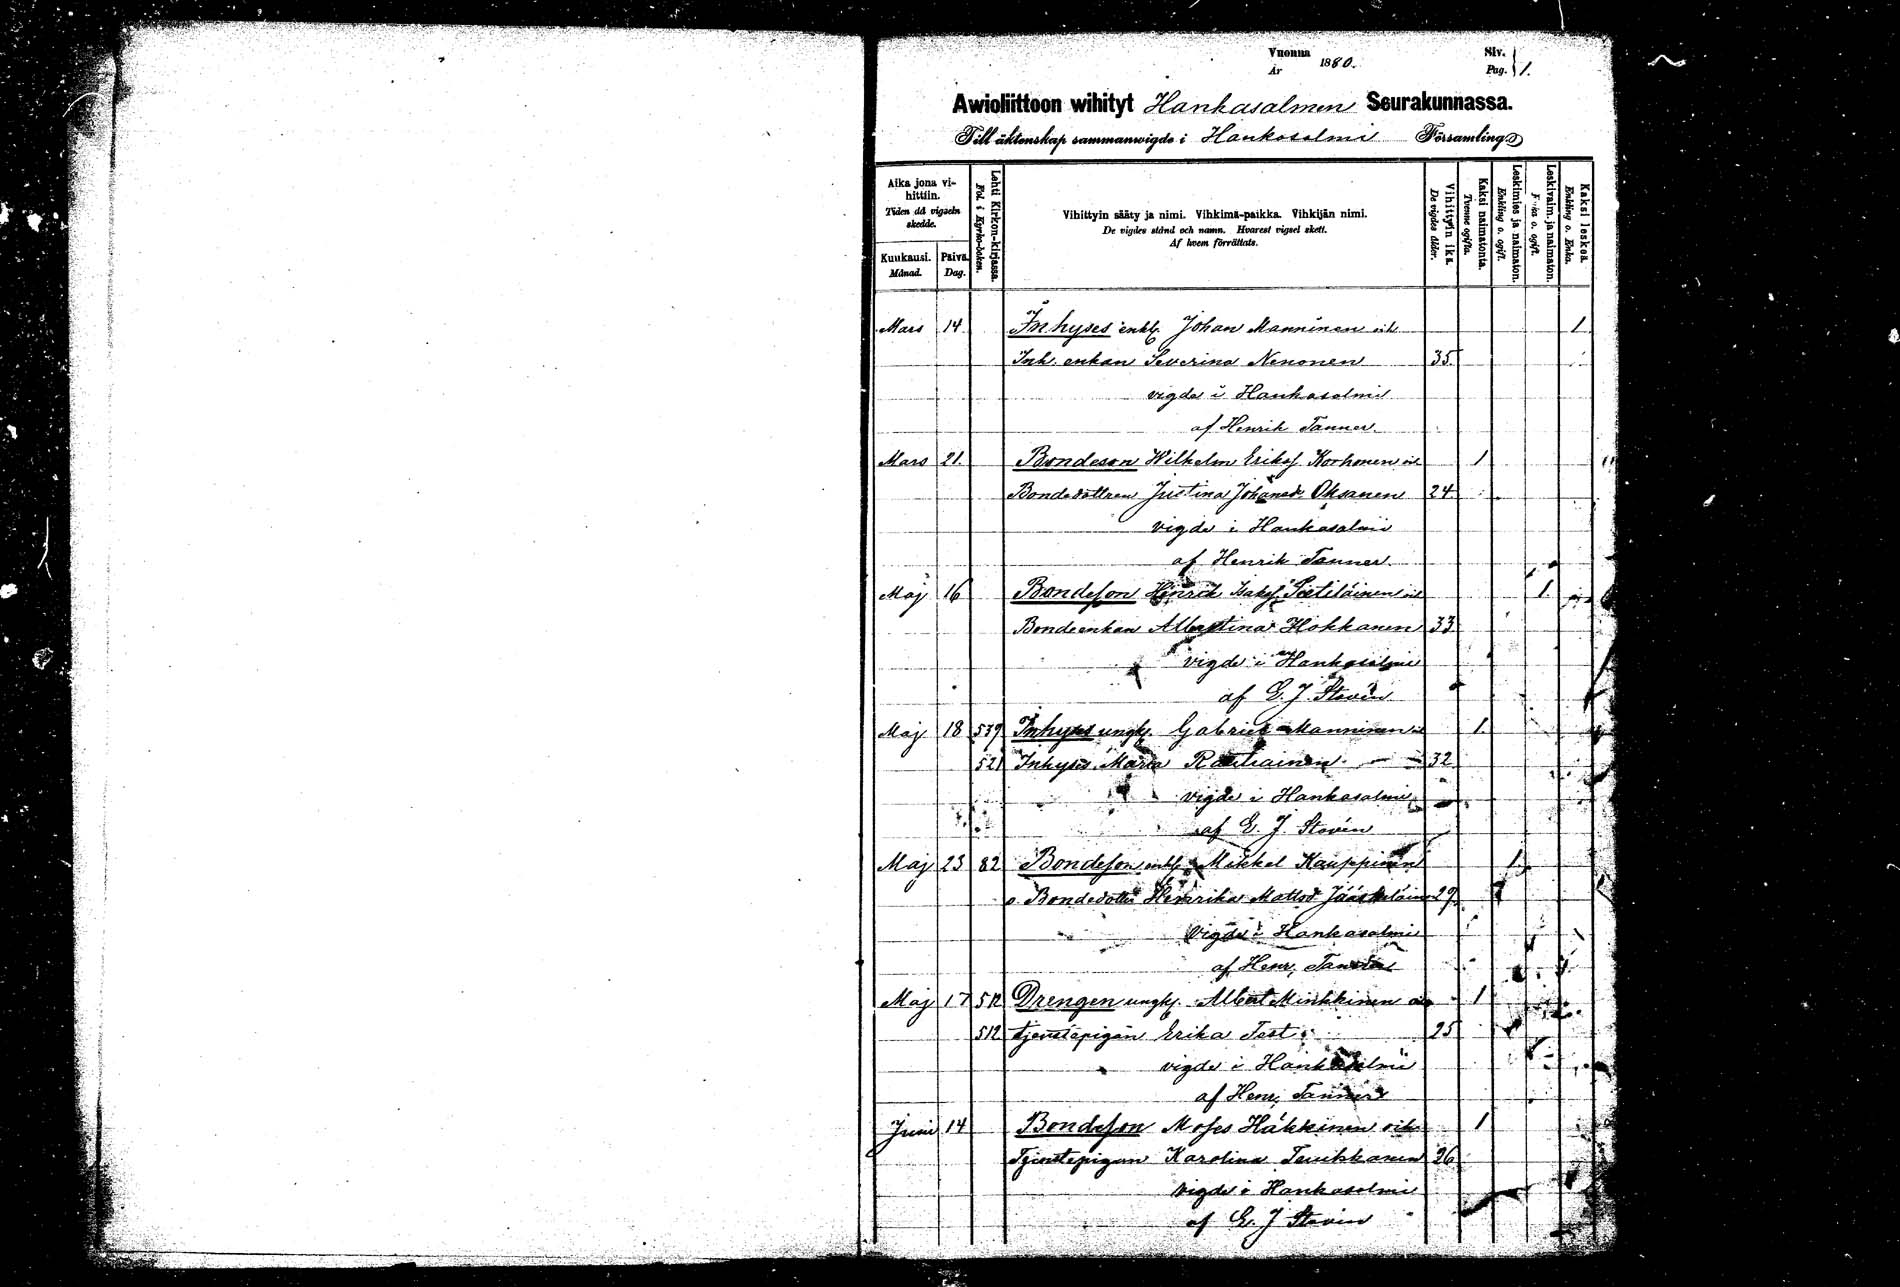 Vuonna 1880. Siv. 1.
År Pag.
Awioliittoon wihityt Hankasalmen Seurakunnassa.
Till äktenskap sammanwigde i Hankasalmi Församling
Aika jona vi-
hittiin.
Tiden då vigseln
skedde.
Kuukausi.
Månad.
Päivä.
Dag.
Lehti Kirkon-kirjassa.
Fol. i Kyrko-boken.
Vihittyin sääty ja nimi. Vihkimä-paikka. Vihkijän nimi.
De vigdes stånd och namn. Hvarest vigsel skett.
Af hvem förrättats.
Vihittyin ikä.
De vigdes ålder.
Kaksi naimatonta.
Tvenne ogifta.
Leskimies ja naimaton.
Enkling o. ogift.
Leskivaim. ja naimaton.
Enka o. ogift.
Kaksi leskeä.
Enkling o. Enka.
Mars 14 Inhyses enkl. Johan Manninen och 1
Inh. enkan Severina Nenonen 35
vigda i Hankasalmi
af Henrik Tanner.
Mars 21. Bondeson Wilhelm Eriksf. Korhonen och 1
Bondedottren Justina Johansd. Oksanen 24
vigde i Hankasalmi
af Henrik Tanner.
Maj 16 Bondeson Henrik Isaksf. och 1
Bondeenkan Albertina Hokkanen 33
vigde i Hankasalmi
af E. J. Stovén
Maj 18 539 Inhyses ungk. Gabriel Manninen och 1.
521 Inhyses Maria Rautiainen 32
vigde i Hankasalmi
af E. J. Stovén
Maj 23 82 Bondeson enkl. Mikkel Kauppinen 1
o. Bondedottr. Henrika Mattsd. Jääskeläinen 29
vigde i Hankasalmi
af Henr. Tanner
Maj 17 512 Drengen ungk. Albert Minkkinen och 1
512 tjenstepigan Erika Test 25
vigde i Hankasalmi
af Henr. Tanner
Juni 14 Bondeson Moses Häkkinen och 1
Tjenstepigan Karolina 26
vigde i Hankasalmi
af E. J. Stovén